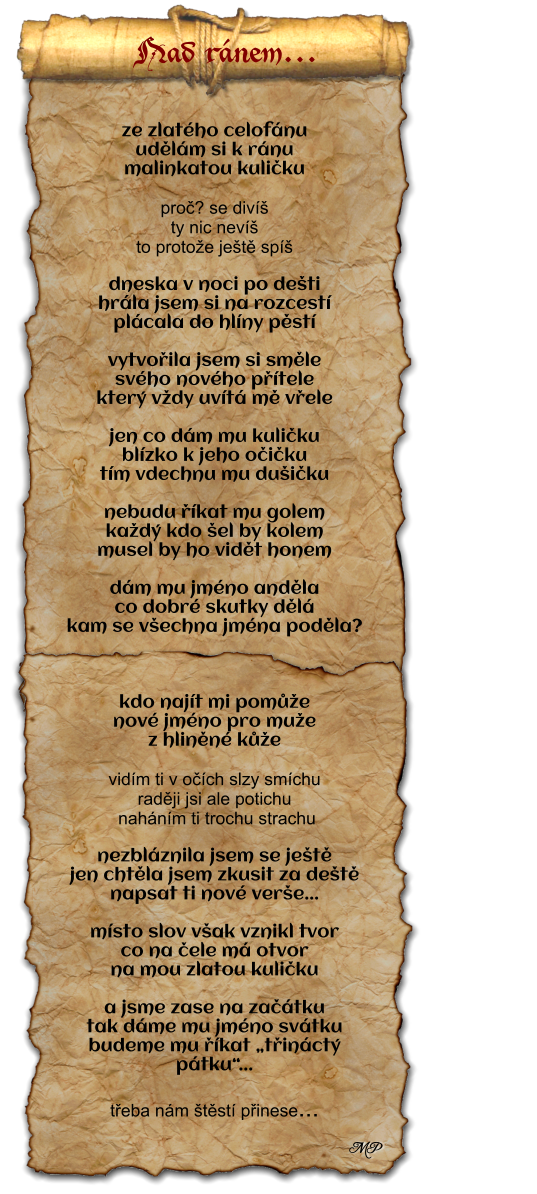 Nad ránem...
ze zlatého celofánu
udělám si k ránu
malinkatou kuličku
proč? se divíš
ty nic nevíš
to protože ještě spíš
dneska v noci po dešti
hrála jsem si na rozcestí
plácala do hlíny pěstí
vytvořila jsem si směle
svého nového přítele
který vždy uvítá mě vřele
jen co dám mu kuličku
blízko k jeho očičku
tím vdechnu mu dušičku
nebudu říkat mu golem
každý kdo šel by kolem
musel by ho vidět honem
dám mu jméno anděla
co dobré skutky dělá
kam se všechna jména poděla?
kdo najít mi pomůže
nové jméno pro muže
z hliněné kůže
vidím ti v očích slzy smíchu
raději jsi ale potichu
naháním ti trochu strachu
nezbláznila jsem se ještě
jen chtěla jsem zkusit za deště
napsat ti nové verše...
místo slov však vznikl tvor
co na čele má otvor
na mou zlatou kuličku
a jsme zase na začátku
tak dáme mu jméno svátku
budeme mu říkat „třináctý
pátku“...
třeba nám štěstí přinese...
MP